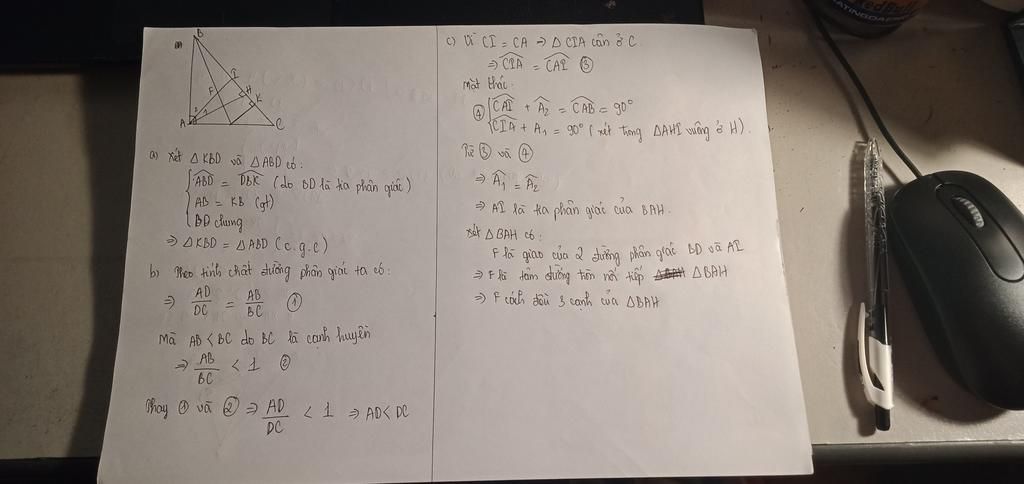 B
I
F
H
K
A
2
1
C
a) Xét △KBD và △ABD có:
ABD = DBK (do BD là tia phân giác)
AB = KB (gt)
BD chung
⇒ △KBD = △ABD (c.g.c)
b) Theo tính chất đường phân giác ta có:
⇒ AD/DC = AB/BC ①
Mà AB < BC do BC là cạnh huyền
⇒ AB/BC < 1 ②
Thay ① và ② ⇒ AD/DC < 1 ⇒ AD < DC
c) Vì CI = CA ⇒ △CIA cân ở C.
⇒ CIA = CAI ③
Mặt khác:
④ CAI + A₂ = CAB = 90°
CIA + A₁ = 90° (xét trong △AHI vuông ở H).
Từ ③ và ④
⇒ A₁ = A₂
⇒ AI là tia phân giác của BAH.
Xét △BAH có:
F là giao của 2 đường phân giác BD và AI
⇒ F là tâm đường tròn nội tiếp △BAH
⇒ F cách đều 3 cạnh của △BAH